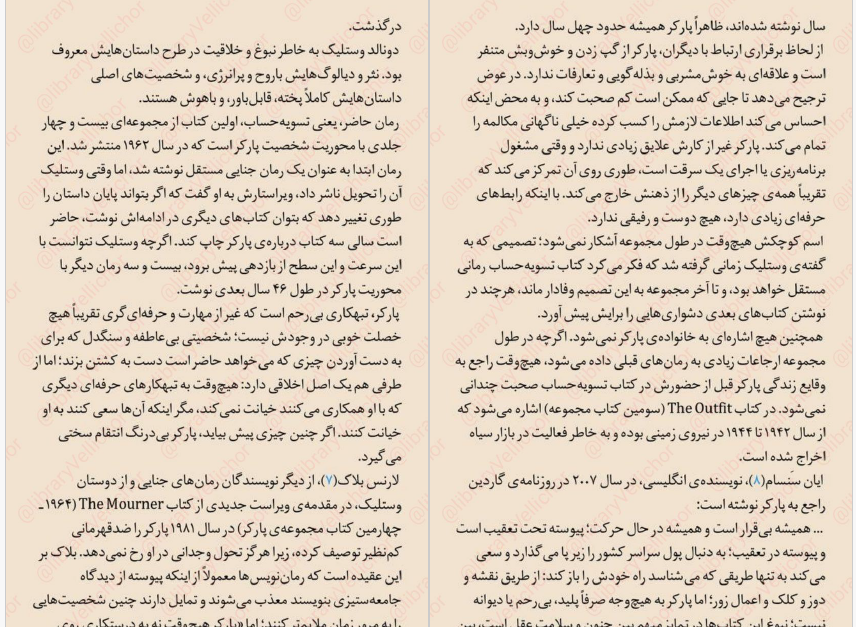 درگذشت.
دونالد وستلیک به خاطر نبوغ و خلاقیت در طرح داستان‌هایش معروف
بود. نثر و دیالوگ‌هایش باروح و پرانرژی، و شخصیت‌های اصلی
داستان‌هایش کاملاً پخته، قابل‌باور، و باهوش هستند.
رمان حاضر، یعنی تسویه‌حساب، اولین کتاب از مجموعه‌ای بیست و چهار
جلدی با محوریت شخصیت پارکر است که در سال ۱۹۶۲ منتشر شد. این
رمان ابتدا به عنوان یک رمان جنایی مستقل نوشته شد، اما وقتی وستلیک
آن را تحویل ناشر داد، ویراستارش به او گفت که اگر بتواند پایان داستان را
طوری تغییر دهد که بتوان کتاب‌های دیگری در ادامه‌اش نوشت، حاضر
است سالی سه کتاب درباره‌ی پارکر چاپ کند. اگرچه وستلیک نتوانست با
این سرعت و این سطح از بازدهی پیش برود، بیست و سه رمان دیگر با
محوریت پارکر در طول ۴۶ سال بعدی نوشت.
پارکر، تبهکاری بی‌رحم است که غیر از مهارت و حرفه‌ای گری تقریباً هیچ
خصلت خوبی در وجودش نیست؛ شخصیتی بی‌عاطفه و سنگدل که برای
به دست آوردن چیزی که می‌خواهد حاضر است دست به کشتن بزند؛ اما از
طرفی هم یک اصل اخلاقی دارد: هیچ‌وقت به تبهکارهای حرفه‌ای دیگری
که با او همکاری می‌کنند خیانت نمی‌کند، مگر اینکه آن‌ها سعی کنند به او
خیانت کنند. اگر چنین چیزی پیش بیاید، پارکر بی‌درنگ انتقام سختی
می‌گیرد.
لارنس بلاک(۷)، از دیگر نویسندگان رمان‌های جنایی و از دوستان
وستلیک، در مقدمه‌ی ویراست جدیدی از کتاب The Mourner (۱۹۶۴ـ
چهارمین کتاب مجموعه‌ی پارکر) در سال ۱۹۸۱ پارکر را ضدقهرمانی
کم‌نظیر توصیف کرده، زیرا هرگز تحول وجدانی در او رخ نمی‌دهد. بلاک بر
این عقیده است که رمان‌نویس‌ها معمولاً از اینکه پیوسته از دیدگاه
جامعه‌ستیزی بنویسند معذب می‌شوند و تمایل دارند چنین شخصیت‌هایی
را به مرور زمان ملایم‌تر کنند؛ اما «پارکر هیچ‌وقت نه به درستکاری روی
سال نوشته شده‌اند، ظاهراً پارکر همیشه حدود چهل سال دارد.
از لحاظ برقراری ارتباط با دیگران، پارکر از گپ زدن و خوش‌وبش متنفر
است و علاقه‌ای به خوش‌مشربی و بذله‌گویی و تعارفات ندارد. در عوض
ترجیح می‌دهد تا جایی که ممکن است کم صحبت کند، و به محض اینکه
احساس می‌کند اطلاعات لازمش را کسب کرده خیلی ناگهانی مکالمه را
تمام می‌کند. پارکر غیر از کارش علایق زیادی ندارد و وقتی مشغول
برنامه‌ریزی یا اجرای یک سرقت است، طوری روی آن تمرکز می‌کند که
تقریباً همه‌ی چیزهای دیگر را از ذهنش خارج می‌کند. با اینکه رابط‌های
حرفه‌ای زیادی دارد، هیچ دوست و رفیقی ندارد.
اسم کوچکش هیچ‌وقت در طول مجموعه آشکار نمی‌شود؛ تصمیمی که به
گفته‌ی وستلیک زمانی گرفته شد که فکر می‌کرد کتاب تسویه‌حساب رمانی
مستقل خواهد بود، و تا آخر مجموعه به این تصمیم وفادار ماند، هرچند در
نوشتن کتاب‌های بعدی دشواری‌هایی را برایش پیش آورد.
همچنین هیچ اشاره‌ای به خانواده‌ی پارکر نمی‌شود. اگرچه در طول
مجموعه ارجاعات زیادی به رمان‌های قبلی داده می‌شود، هیچ‌وقت راجع به
وقایع زندگی پارکر قبل از حضورش در کتاب تسویه‌حساب صحبت چندانی
نمی‌شود. در کتاب The Outfit (سومین کتاب مجموعه) اشاره می‌شود که
از سال ۱۹۴۲ تا ۱۹۴۴ در نیروی زمینی بوده و به خاطر فعالیت در بازار سیاه
اخراج شده است.
ایان سَنسام(۸)، نویسنده‌ی انگلیسی، در سال ۲۰۰۷ در روزنامه‌ی گاردین
راجع به پارکر نوشته است:
... همیشه بی‌قرار است و همیشه در حال حرکت؛ پیوسته تحت تعقیب است
و پیوسته در تعقیب؛ به دنبال پول سراسر کشور را زیر پا می‌گذارد و سعی
می‌کند به تنها طریقی که می‌شناسد راه خودش را باز کند: از طریق نقشه و
دوز و کلک و اعمال زور؛ اما پارکر به هیچ‌وجه صرفاً پلید، بی‌رحم یا دیوانه
نیست؛ نبوغ این کتاب‌ها در تمایز مبهم بین جنون و سلامت عقل است، بین